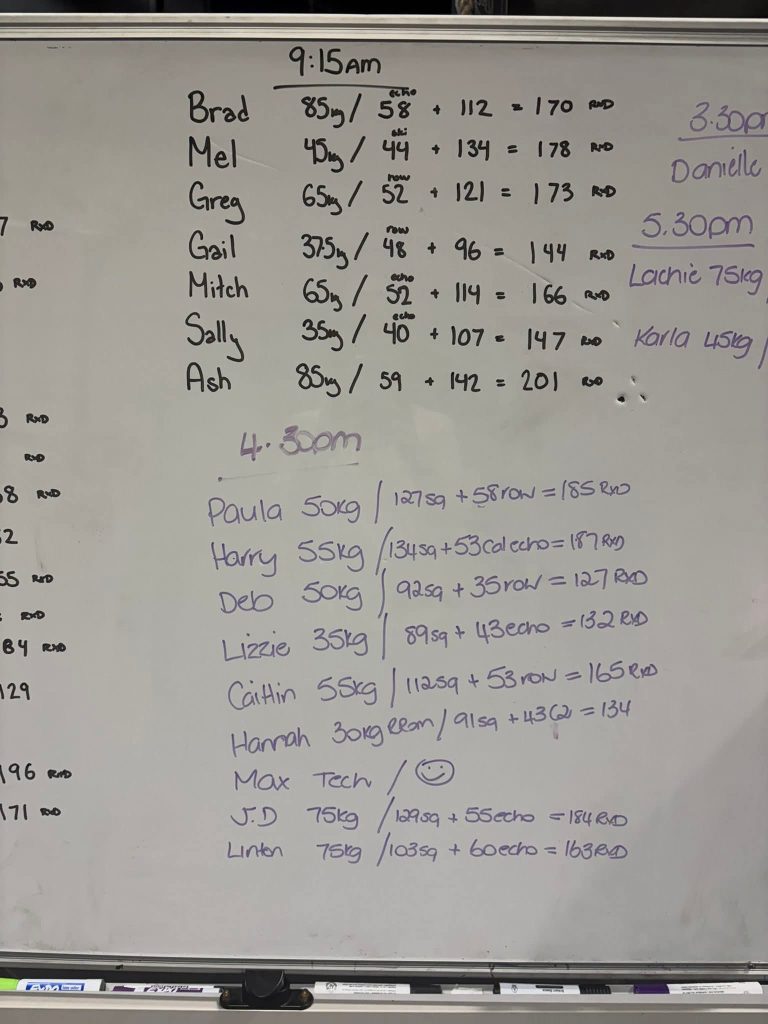 9:15AM
Brad 85kg / 58 echo + 112 = 170 RxD
Mel 45kg / 44 ski + 134 = 178 RxD
Greg 65kg / 52 row + 121 = 173 RxD
Gail 37.5kg / 48 row + 96 = 144 RxD
Mitch 65kg / 52 echo + 114 = 166 RxD
Sally 35kg / 40 echo + 107 = 147 RxD
Ash 85kg / 59 + 142 = 201 RxD
4.30pm
Paula 50kg / 127sq + 58row = 185 RxD
Harry 55kg / 134sq + 53cal echo = 187 RxD
Deb 50kg / 92sq + 35row = 127 RxD
Lizzie 35kg / 89sq + 43echo = 132 RxD
Caitlin 55kg / 112sq + 53row = 165 RxD
Hannah 30kg / 91sq + 43 = 134
Max Tech /
J.D 75kg / 129sq + 55echo = 184 RxD
Linton 75kg / 103sq + 60echo = 163 RxD
3.30pm
Danielle
5.30pm
Lachie 75kg /
Karla 45kg /
7 RxD
RxD
3 RxD
RxD
68 RxD
2
55 RxD
RxD
84 RxD
129
196 RxD
171 RxD